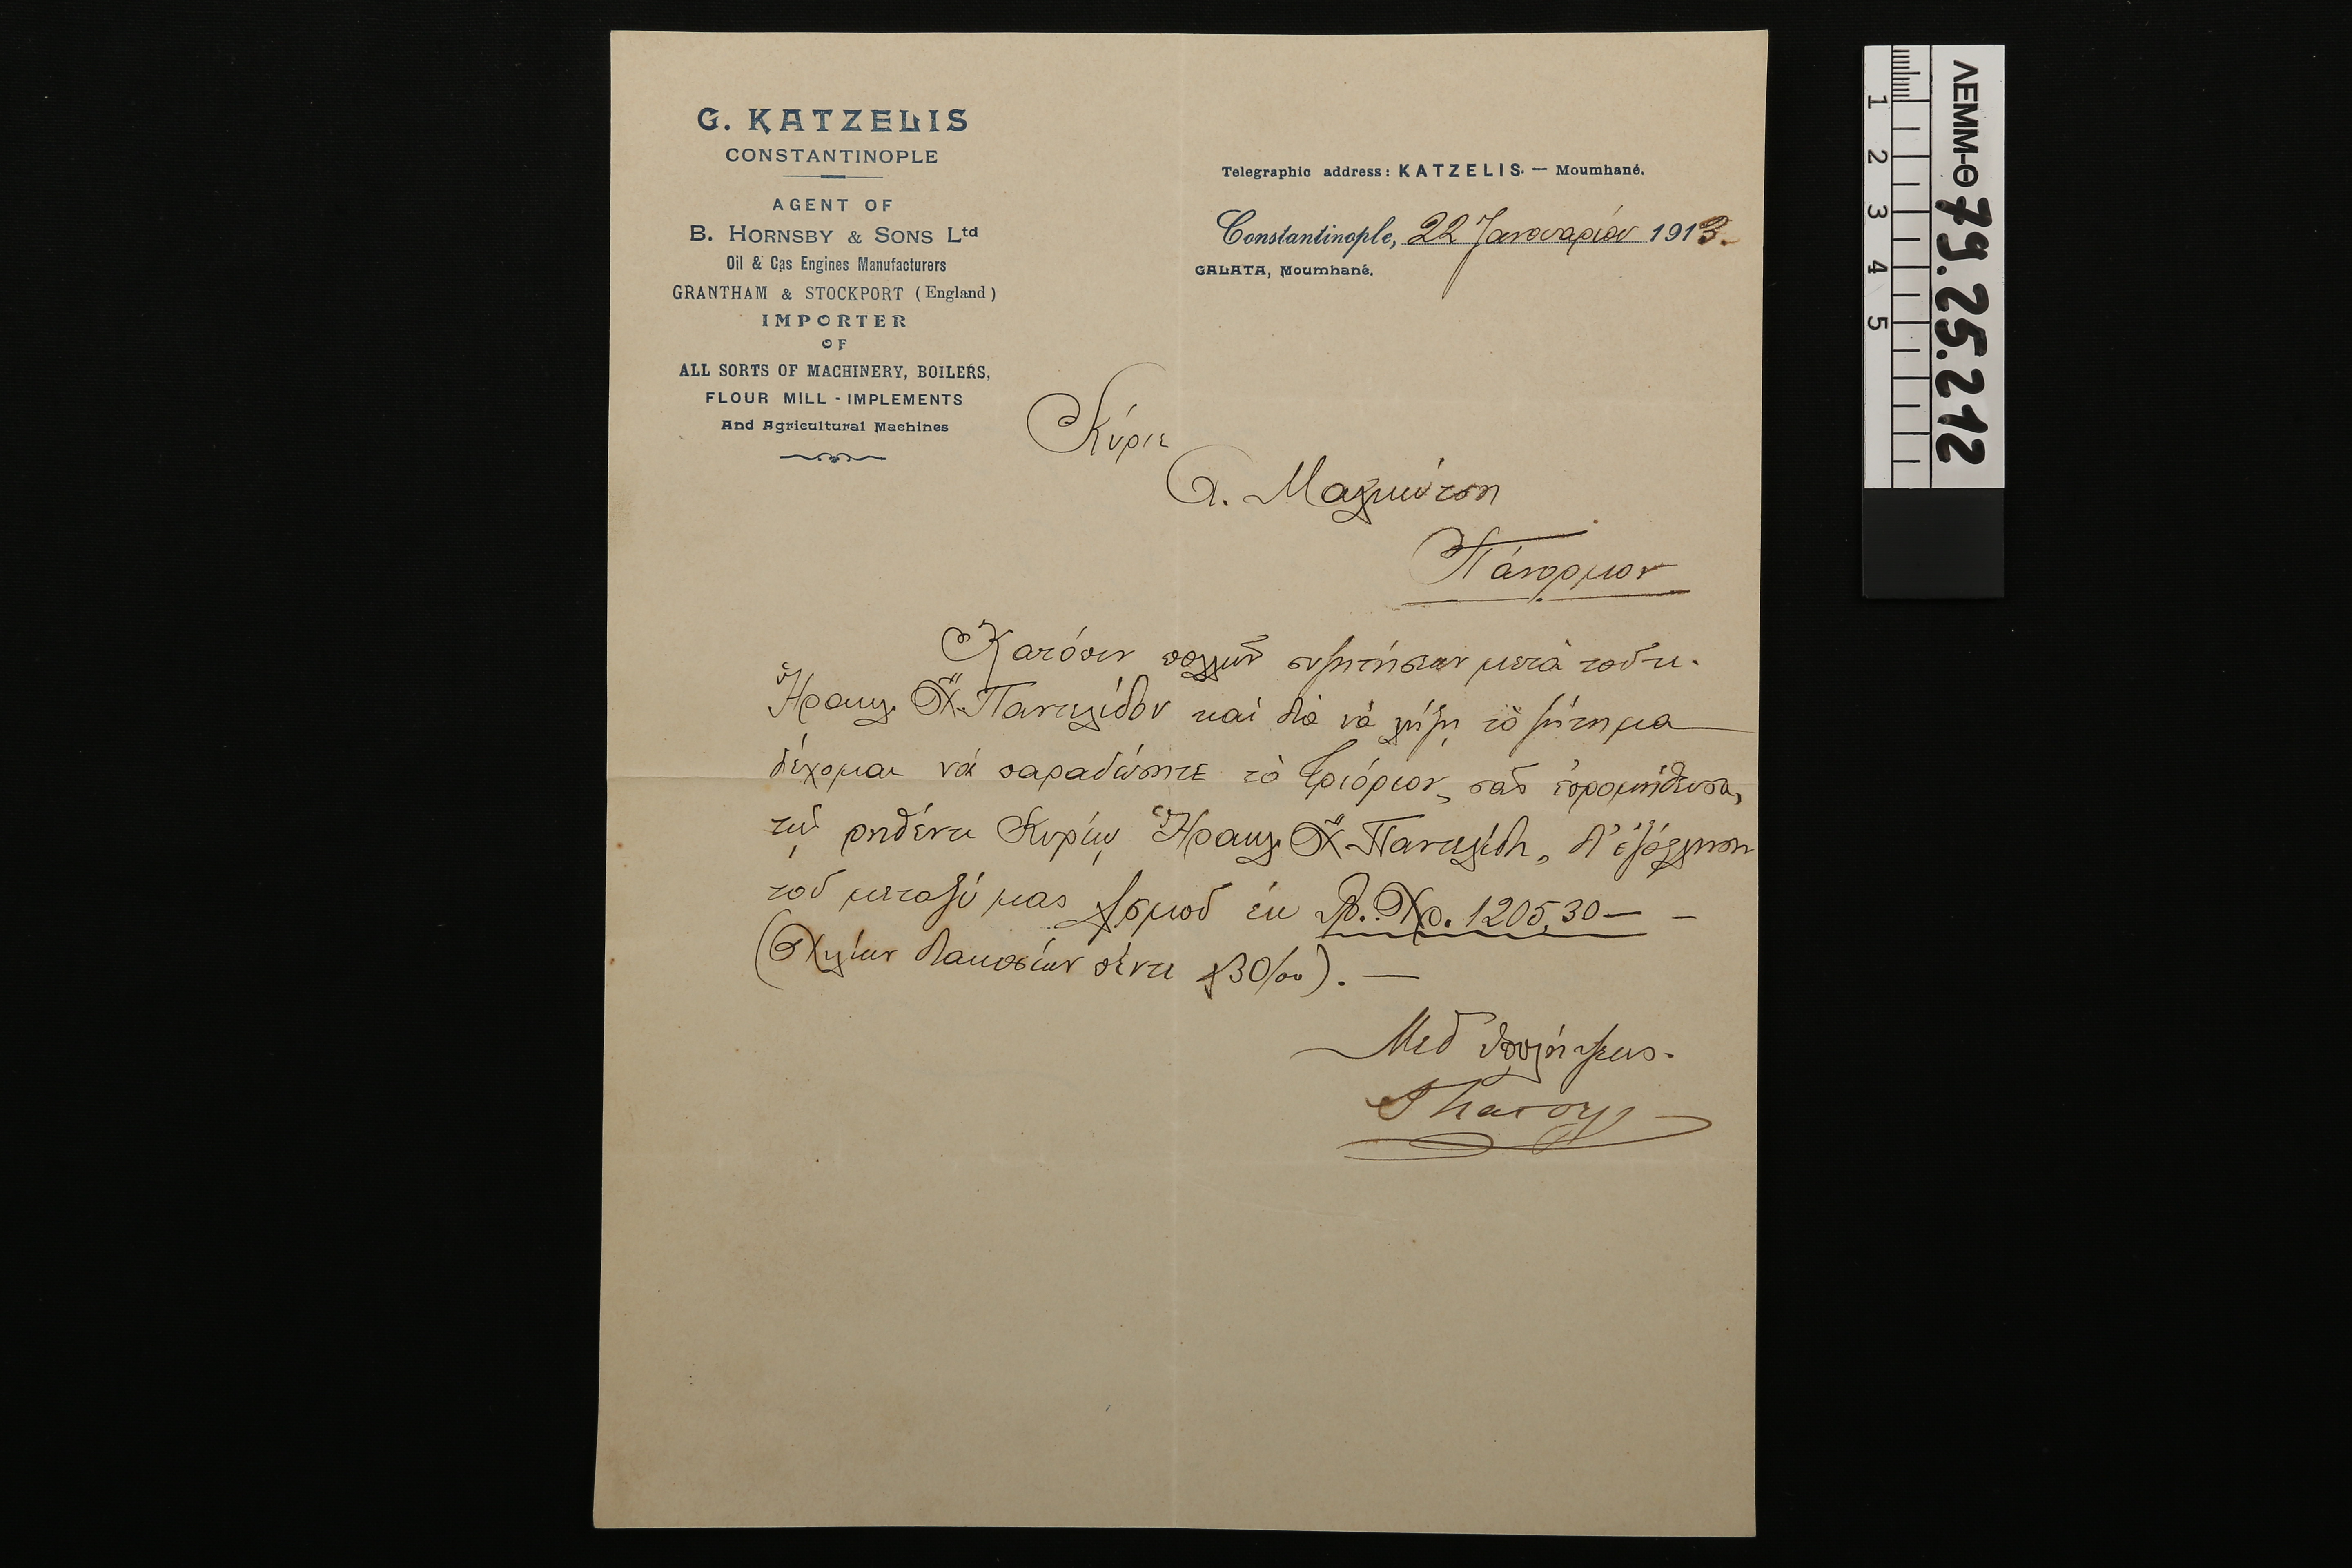 G. KATZELIS
CONSTANTINOPLE
AGENT OF
B. HORNSBY & SONS Ltd
Oil & Gas Engines Manufacturers
GRANTHAM & STOCKPORT (England)
IMPORTER
OF
ALL SORTS OF MACHINERY, BOILERS,
FLOUR MILL - IMPLEMENTS
And Agricultural Machines
Telegraphic address: KATZELIS. — Moumhané.
Constantinople, 22 Ιανουαρίου 1913.
GALATA, Moumhané.
Κύριε
Πάνορμον
Κατόπιν πολλῶν συζητήσεων μετὰ τοῦ κ.
Ἡρακλ. Χ" Παντελίδου καὶ διὰ νὰ λήξῃ τὸ ζήτημα
δέχομαι νὰ παραδώσητε τὸ σᾶς ἐπρομήθευσα,
τῷ ρηθέντι Κυρίῳ Ἡρακλ. Χ" Παντελίδῃ, δι' ἐξόφλησιν
τοῦ μεταξύ μας λ/σμοῦ ἐκ Χρ. 1205,30 — —
(Χιλίων διακοσίων πέντε & 30/00). —
Μεθ' ὑπολήψεως.
ΛΕΜΜ-Θ 79.25.212
1 2 3 4 5